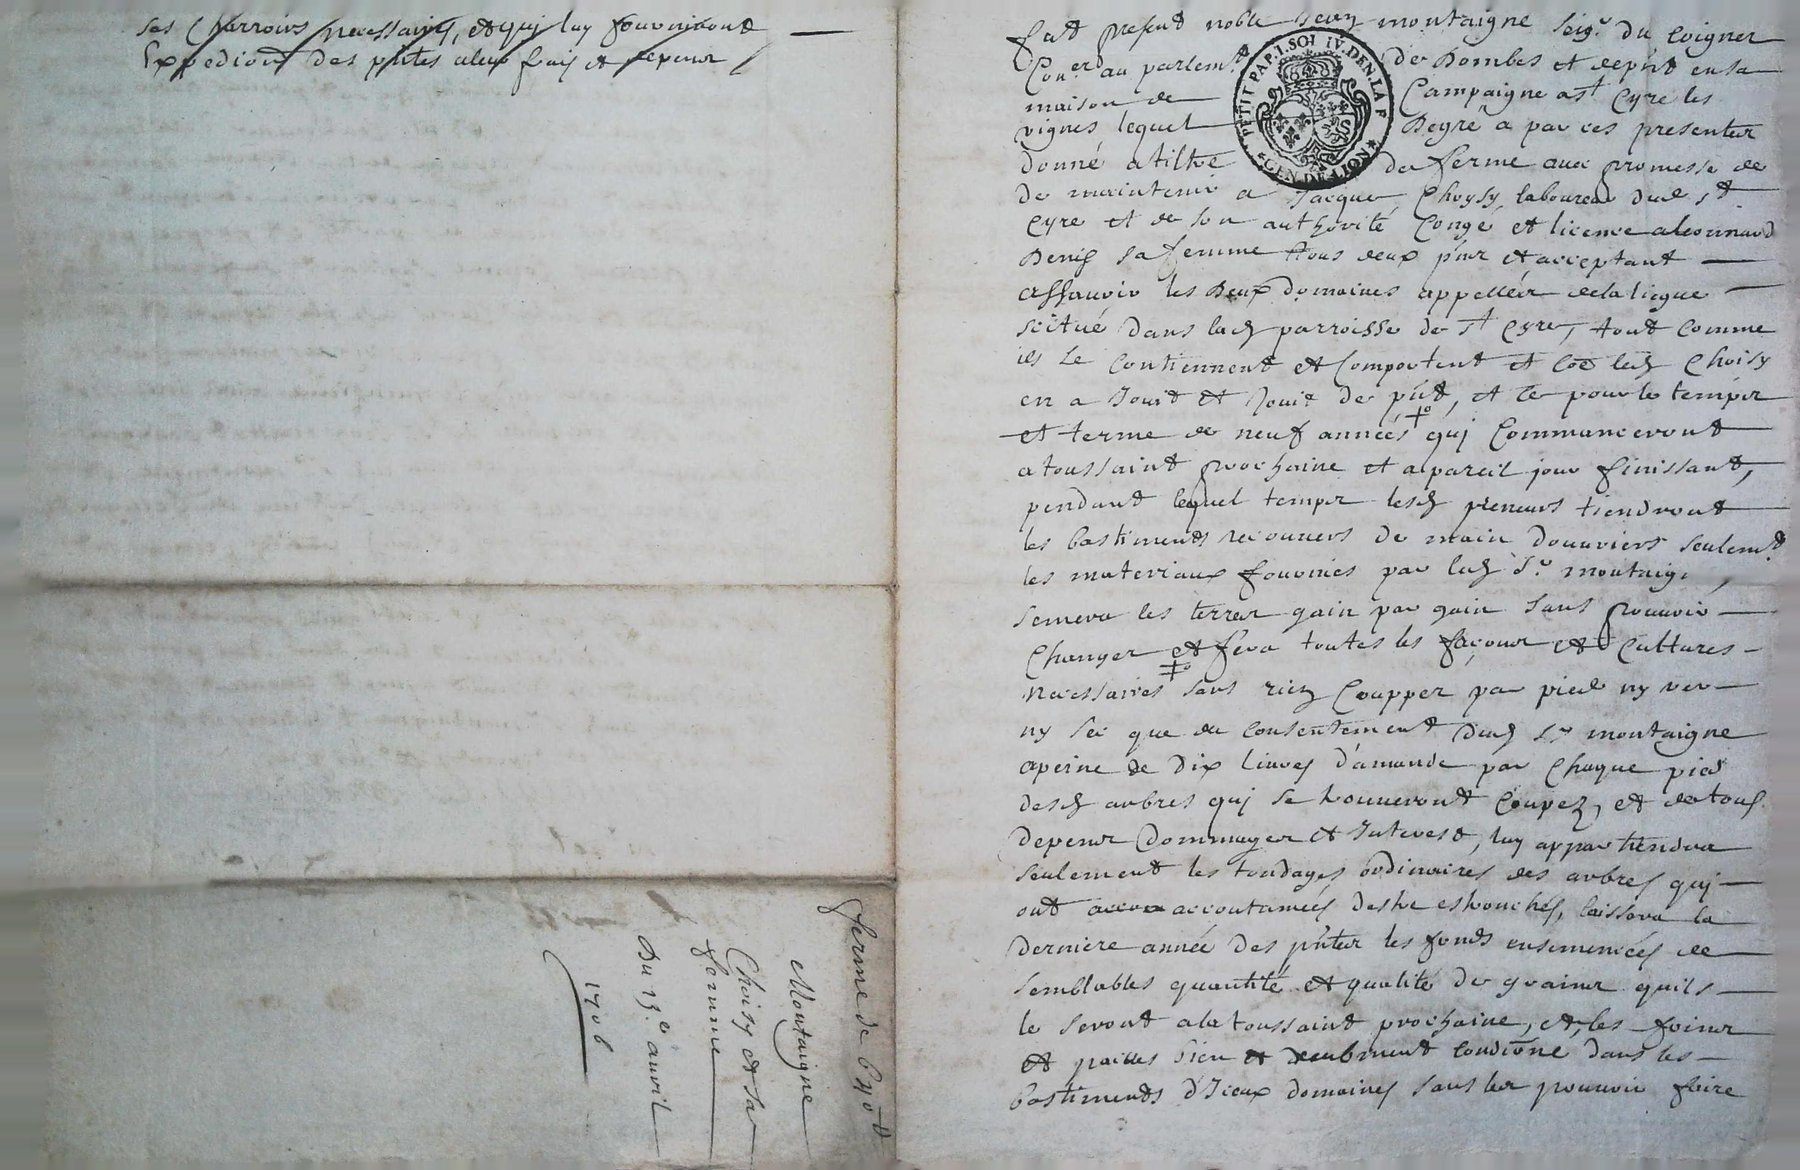 ses Charrois necessaires, et quj luy fourniront
Expedion des pntes a leur frais et depens
fut present noble Jean montaigne seigr. du Coignet
Coner. au parlemt. de Dombes et depnt en sa
maison de Campaigne a st Cyre les
vignes lequel Degré a par ces presentes
donné a tiltre de ferme avec promesse de
de maintenir a Jacque Choysy, laboureur dud st
Cyre et de son authorité Congé et licence a leonnard
Denis sa femme tous deux pnts et acceptant
assavoir les Deux Domaines appellés de la ligue
scitué dans lad parroisse de st Cyre, tout comme
ils se Contiennent et Comportent et Coe led Choisy
en a Jouit et Jouit de pnt, et ce pour le temps
et terme de neuf années quj Commanceront
a toussaint prochaine et a pareil jour finissant,
pendant lequel temps lesd preneurs tiendront
les bastiments recouvers de main d'ouvriers seulemt
les materiaux fournies par led Sr. montaig
semera les terres gain par gain sans pouvoir
Changer et fera toutes les façons et Cultures
necessaires sans rien Coupper par pied ny ver
ny sec que du Consentement dud sr montaigne
apeine de Dix livres d'amande par Chaque pied
desd arbres quj se trouveront Coupez, et de tous
depens Dommages et Interest, luy appartiendra
seulement les tondages ordinaires des arbres quj
ont accoutumées destre estrouchés, laissera la
derniere année des pntes les fonds ensemencées de
semblables quantité et qualité de grains quils
le seront a la toussaint prochaine, et, les foins
et pailles bien et deubment Condione dans les
bastiments d'Iceux domaines sans les pouvoir faire
PETIT PAP. 1. SOL IV. DEN. LA F
GEN. DE LION
ferme de
Montaigne
Choisy et sa
femme
Du 13e avril
1706